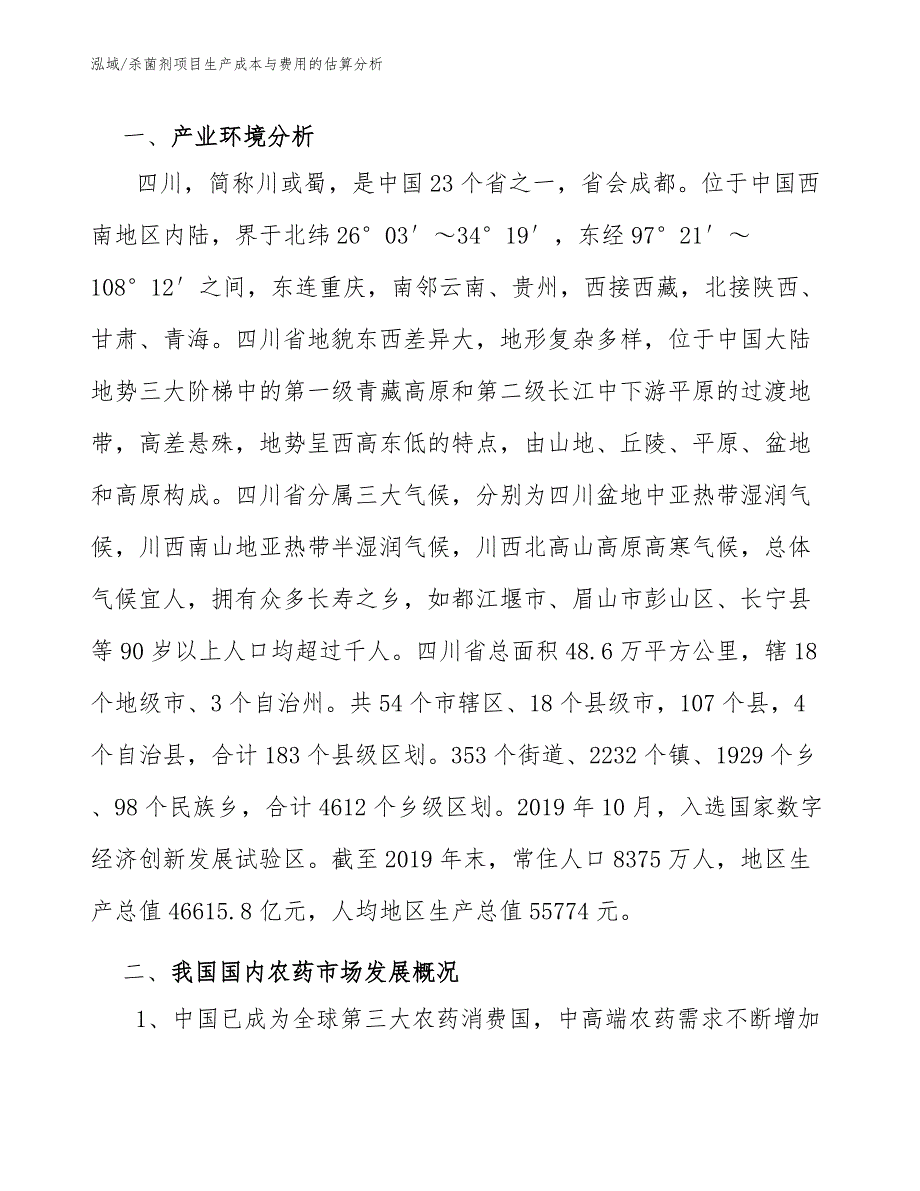 泓域/杀菌剂项目生产成本与费用的估算分析
一、产业环境分析
四川，简称川或蜀，是中国 23 个省之一，省会成都。位于中国西
南地区内陆，界于北纬 26°03′～34°19′，东经 97°21′～
108°12′之间，东连重庆，南邻云南、贵州，西接西藏，北接陕西、
甘肃、青海。四川省地貌东西差异大，地形复杂多样，位于中国大陆
地势三大阶梯中的第一级青藏高原和第二级长江中下游平原的过渡地
带，高差悬殊，地势呈西高东低的特点，由山地、丘陵、平原、盆地
和高原构成。四川省分属三大气候，分别为四川盆地中亚热带湿润气
候，川西南山地亚热带半湿润气候，川西北高山高原高寒气候，总体
气候宜人，拥有众多长寿之乡，如都江堰市、眉山市彭山区、长宁县
等 90 岁以上人口均超过千人。四川省总面积 48.6 万平方公里，辖 18
个地级市、3 个自治州。共 54 个市辖区、18 个县级市，107 个县，4
个自治县，合计 183 个县级区划。353 个街道、2232 个镇、1929 个乡
、98 个民族乡，合计 4612 个乡级区划。2019 年 10 月，入选国家数字
经济创新发展试验区。截至 2019 年末，常住人口 8375 万人，地区生
产总值 46615.8 亿元，人均地区生产总值 55774 元。
二、我国国内农药市场发展概况
1、中国已成为全球第三大农药消费国，中高端农药需求不断增加